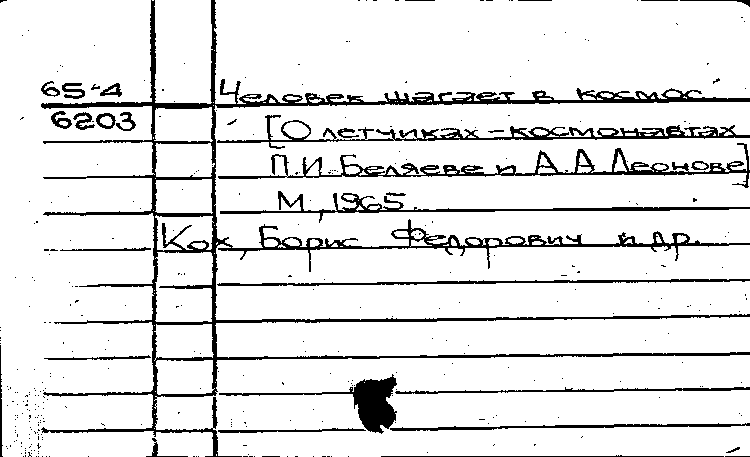 65-4 Человек шагает в космос
6203 [О летчиках-космонавтах
П.И. Беляеве и А.А Леонове]
М, 1965.
Кох, Борис Федорович и др.